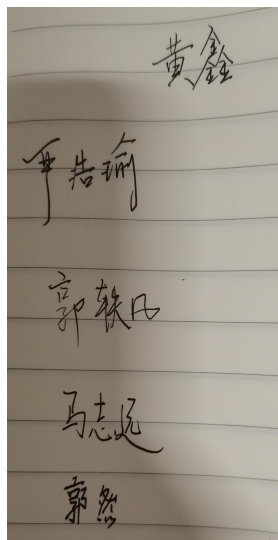 黄鑫
严浩瑜
郭轶凡
马志远
郭然